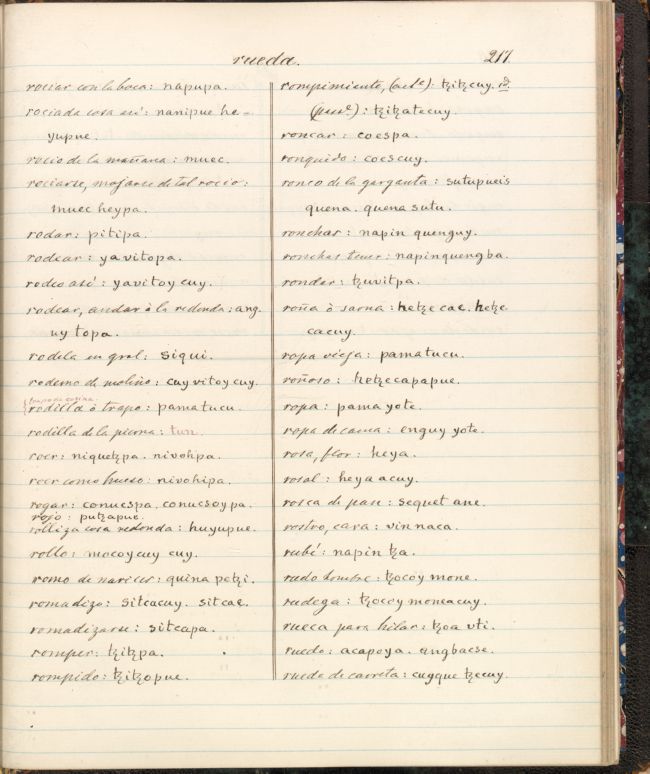 rueda.
217.
rociar con la boca: napupa.
rociada cosa asi: nanipue he-
yupue.
rocio de la mañana: muec.
rociarse, mojarse de tal rocio:
muec heypa.
rodar: pitipa.
rodear: yavitopa.
rodeo asi: yavitoy cuy.
rodear, andar à la redonda: ang
uy topa.
rodela en gral: siqui.
rodezno de molino: cuy vitoy cuy.
rodilla ò trapo: pamatucu.
rodilla de la pierna:
roer: niquetzpa. nivohpa.
roer como hueso: nivohipa.
rogar: conucspa, conucsoypa.
rojo: putzapue.
rolliza cosa redonda: huyupue.
rollo: mocoy cuy cuy.
romo de narices: quina petzi.
romadizo: sitcacuy. sitcae.
romadizarse: sitcapa.
romper: tzitzpa.
rompido: tzitzopue.
rompimiento, (acte.): tzitzcuy. id.
: tzitzatecuy.
roncar: coespa.
ronquido: coescuy.
ronco de la garganta: sutupueis
quena. quena sutu.
ronchas: napin quenguy.
ronchas tener: napinquengba.
rondar: tzuvitpa.
roña ò sarna: hetze cae. hetze
cacuy.
ropa vieja: pamatucu.
roñoso: hetzecapapue.
ropa: pama yote.
ropa de cama: enguy yote.
rosa, flor: heya.
rosal: heya acuy.
rosca de pan: sequet ane.
rostro, cara: vin naca.
rubi: napin tza.
rudo hombre: tzocoy mone.
rudeza: tzocoy moneacuy.
rueca para hilar: tzoa vti.
ruedo: acapoya. angbacse.
rueda de carreta: cuyque tzecuy.